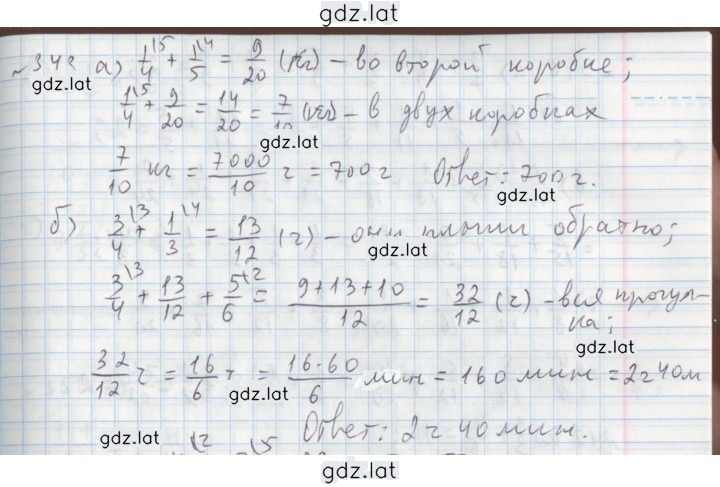 gdz.lat
№343 а) 1/4\5 + 1/5\4 = 9/20 (кг) – во второй коробке;
gdz.lat
1/4\5 + 9/20 = 14/20 = 7/10 (кг) – в двух коробках
gdz.lat
7/10 кг = 7000/10 г = 700 г Ответ: 700 г.
gdz.lat
б) 3/4\3 + 1/3\4 = 13/12 (ч) – они плыли обратно;
gdz.lat
3/4\3 + 13/12 + 5/6\2 = 9+13+10/12 = 32/12 (ч) – вся прогул-
ка;
32/12 ч = 16/6 ч = 16·60/6 мин = 160 мин = 2ч 40м
gdz.lat
gdz.lat Ответ: 2ч 40 мин.
gdz.lat